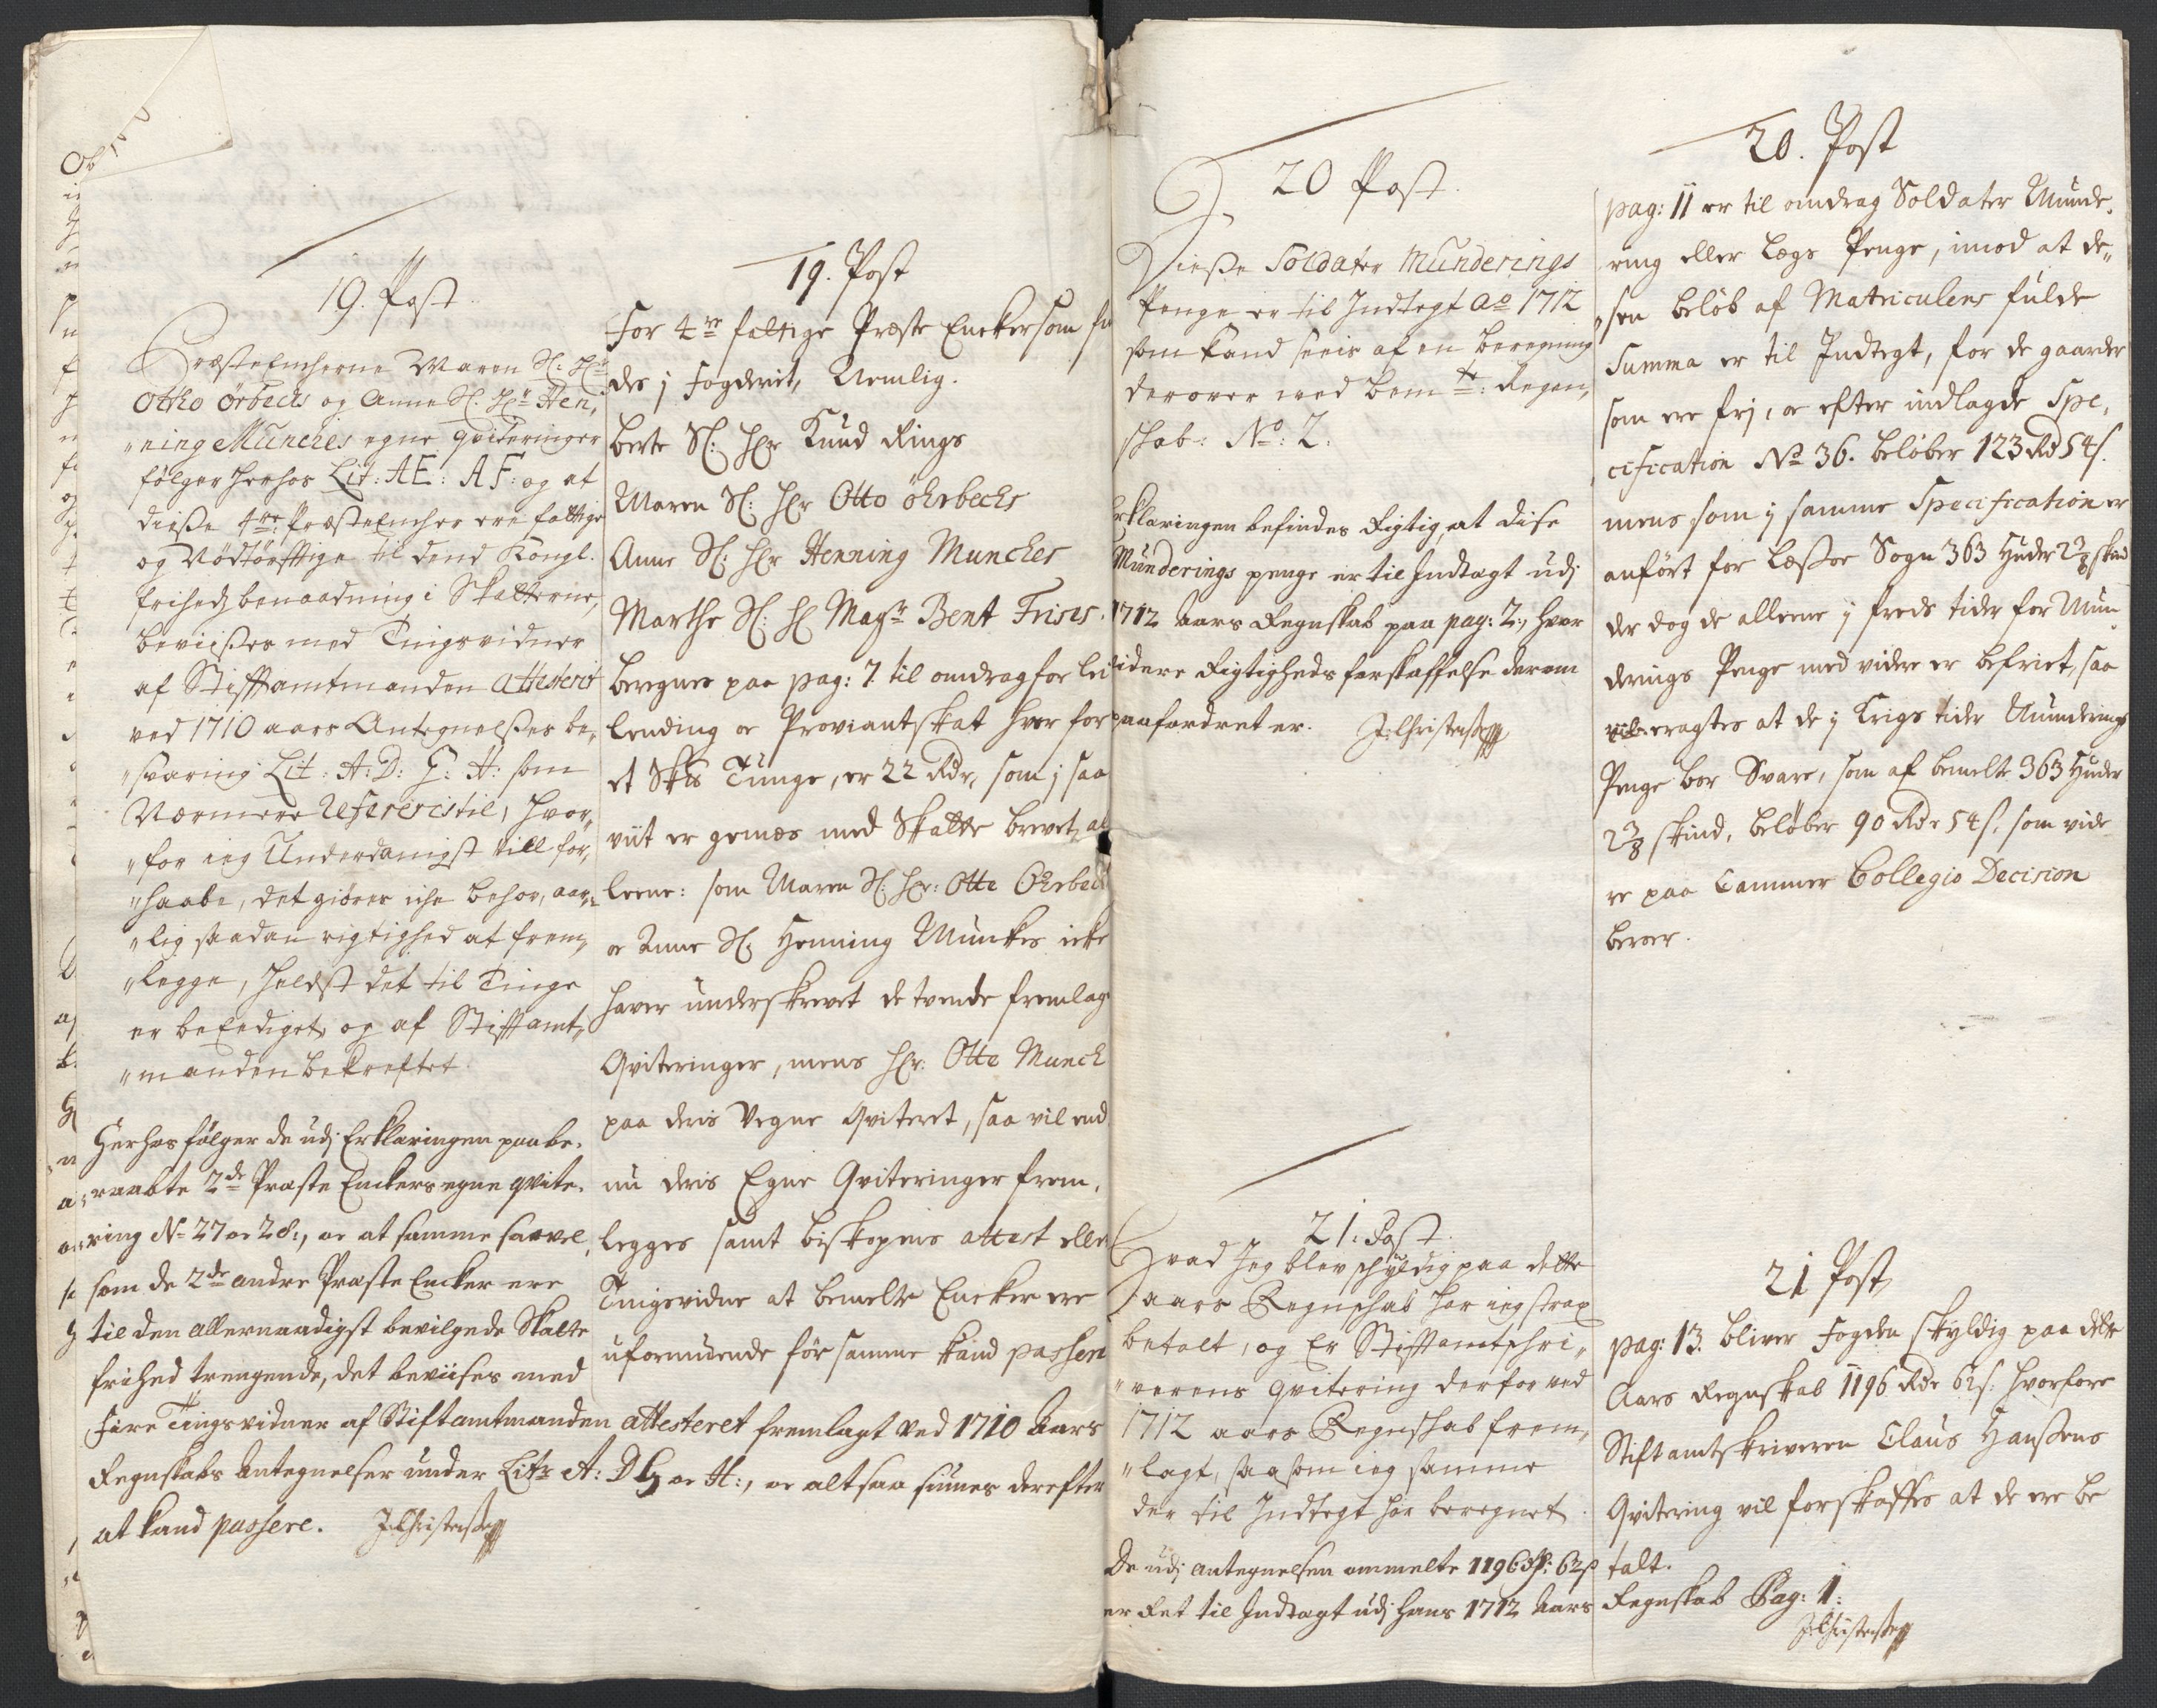 19. Post
Præsteencherne Maren Sl: Hr
Otho Örbechs og Anne Sl: Hr Hen„
„ning Munches egne qviteringer
følger herhos Lit: AE: AF: og at
dieße 4re: Præsteencher ere fattige
og Nödtörfftige til dend Kongl.
frihedz benaadning i Skatterne,
bevißes med Tingsvidner
af Stifftamtmanden attesterit
ved 1710 aars Antegnelßes be„
„svaring Lit: A: D: G: H: som
Nærmere refereris til, hvor„
„for ieg Underdanigst vill for„
„haabe, det giöres iche behov, aar„
„lig saadan rigtighed at frem„
„legge, heldst det til Tinge
er beEediget, og af Stifftamt„
„manden bekreftet.
Herhos fölger de udj Erklaringen paabe„
raabte 2de Præste Enckers egne qvite„
ring No 27 oc 28:, oc at samme saavel,
som de 2de andre Præste Encker ere
til den allernaadigst bevilgede Skatte
frihed trengende, det beviises med
Fire Tingsvidner af Stiftamtmanden attesteret fremlagt ved 1710 Aars
Regnskabs Antegnelser under Litr A: D G oc H:, oc altsaa siunes derefter
at kand passere.
19. Post
For 4re fattige Præste Encker som fin
des j Fogderit, Nemlig.
berte Sl: Hr Knud Rings
Maren Sl: Hr Otto öhrbechs
Anne Sl: Hr Henning Munches
Marthe Sl: H Magr Bent Frises.
beregnes paa pag: 7. til omdrag for lei
lending oc Proviantskat hver for
et Skis Tunge, er 22 Rdr, som j saa
viit er gemæs med Skatte brevet, al
leene: som Maren Sl: Hr: Otte Öhrbech
oc Anne Sl: Henning Munkes icke
haver underskrevet de tvende fremlagt
Qviteringer, mens Hr: Otte Munch
paa deris Vegne Qviteret, saa vil end
nu deris Egne Qviteringer frem„
legges samt biskopens attest eller
Tingsvidne at bemelte Encker ere
uformuende för samme kand passere
20 Post.
Dieße Soldater Munderings
Penge er til Indtegt ao 1712
som kand sees af en beregning
derover med bemte: Regen„
skab: No: 2.
Erklaringen befindes Rigtig, at dise
Munderings penge er til Indtagt udj
1712 Aars Regnskab paa pag: 2, hvor
videre Rigtigheds forskaffelse derom
paafordret er.
21: Post.
Hvad Jeg blev schyldig paa dette
aars Regnschab har ieg strax
betalt, og Er Stifftamtschri„
„verens qvitering derfor ved
1712 aars Regnschab frem„
„lagt, saa som ieg samme
der til Indtegt har beregnet.
De udj antegnelsen ommelte 1196 Rdr: 62 s
er Ret til Indtagt udj hans 1712 Aars Regnskab Pag: 1:
20. Post
pag: 11 er til omdrag Soldater Munde„
ring eller Lægs Penge, imod at de„
„sen beløb af Matriculens fulde
Summa er til Indtegt, for de gaarder
som ere frj, oc efter indlagde Spe„
cification No 36. beløber 123 Rd 54 s.
mens som j samme Specification er
anfört for Læßöe Sogn 363 Huder 2⅜ skind
der dog de alleene j freds tider for Mun„
derings Penge med videre er befriet, saa
eragtes at de j Krigs tider Munderings
Penge bør Svare, som af bemelte 363 Huder
2⅜ skind, beløber 90 Rdr 54 s, som vide„
re paa Cammer Collegio Decision
beroer.
21 Post,
pag: 13. bliver Fogden skyldig paa dette
Aars Regnskab 1196 Rdr 62 s. hvorfore
Stiftamtskriveren Claus Hanßens
Qvitering vil forskaffes at de ere be
talt.